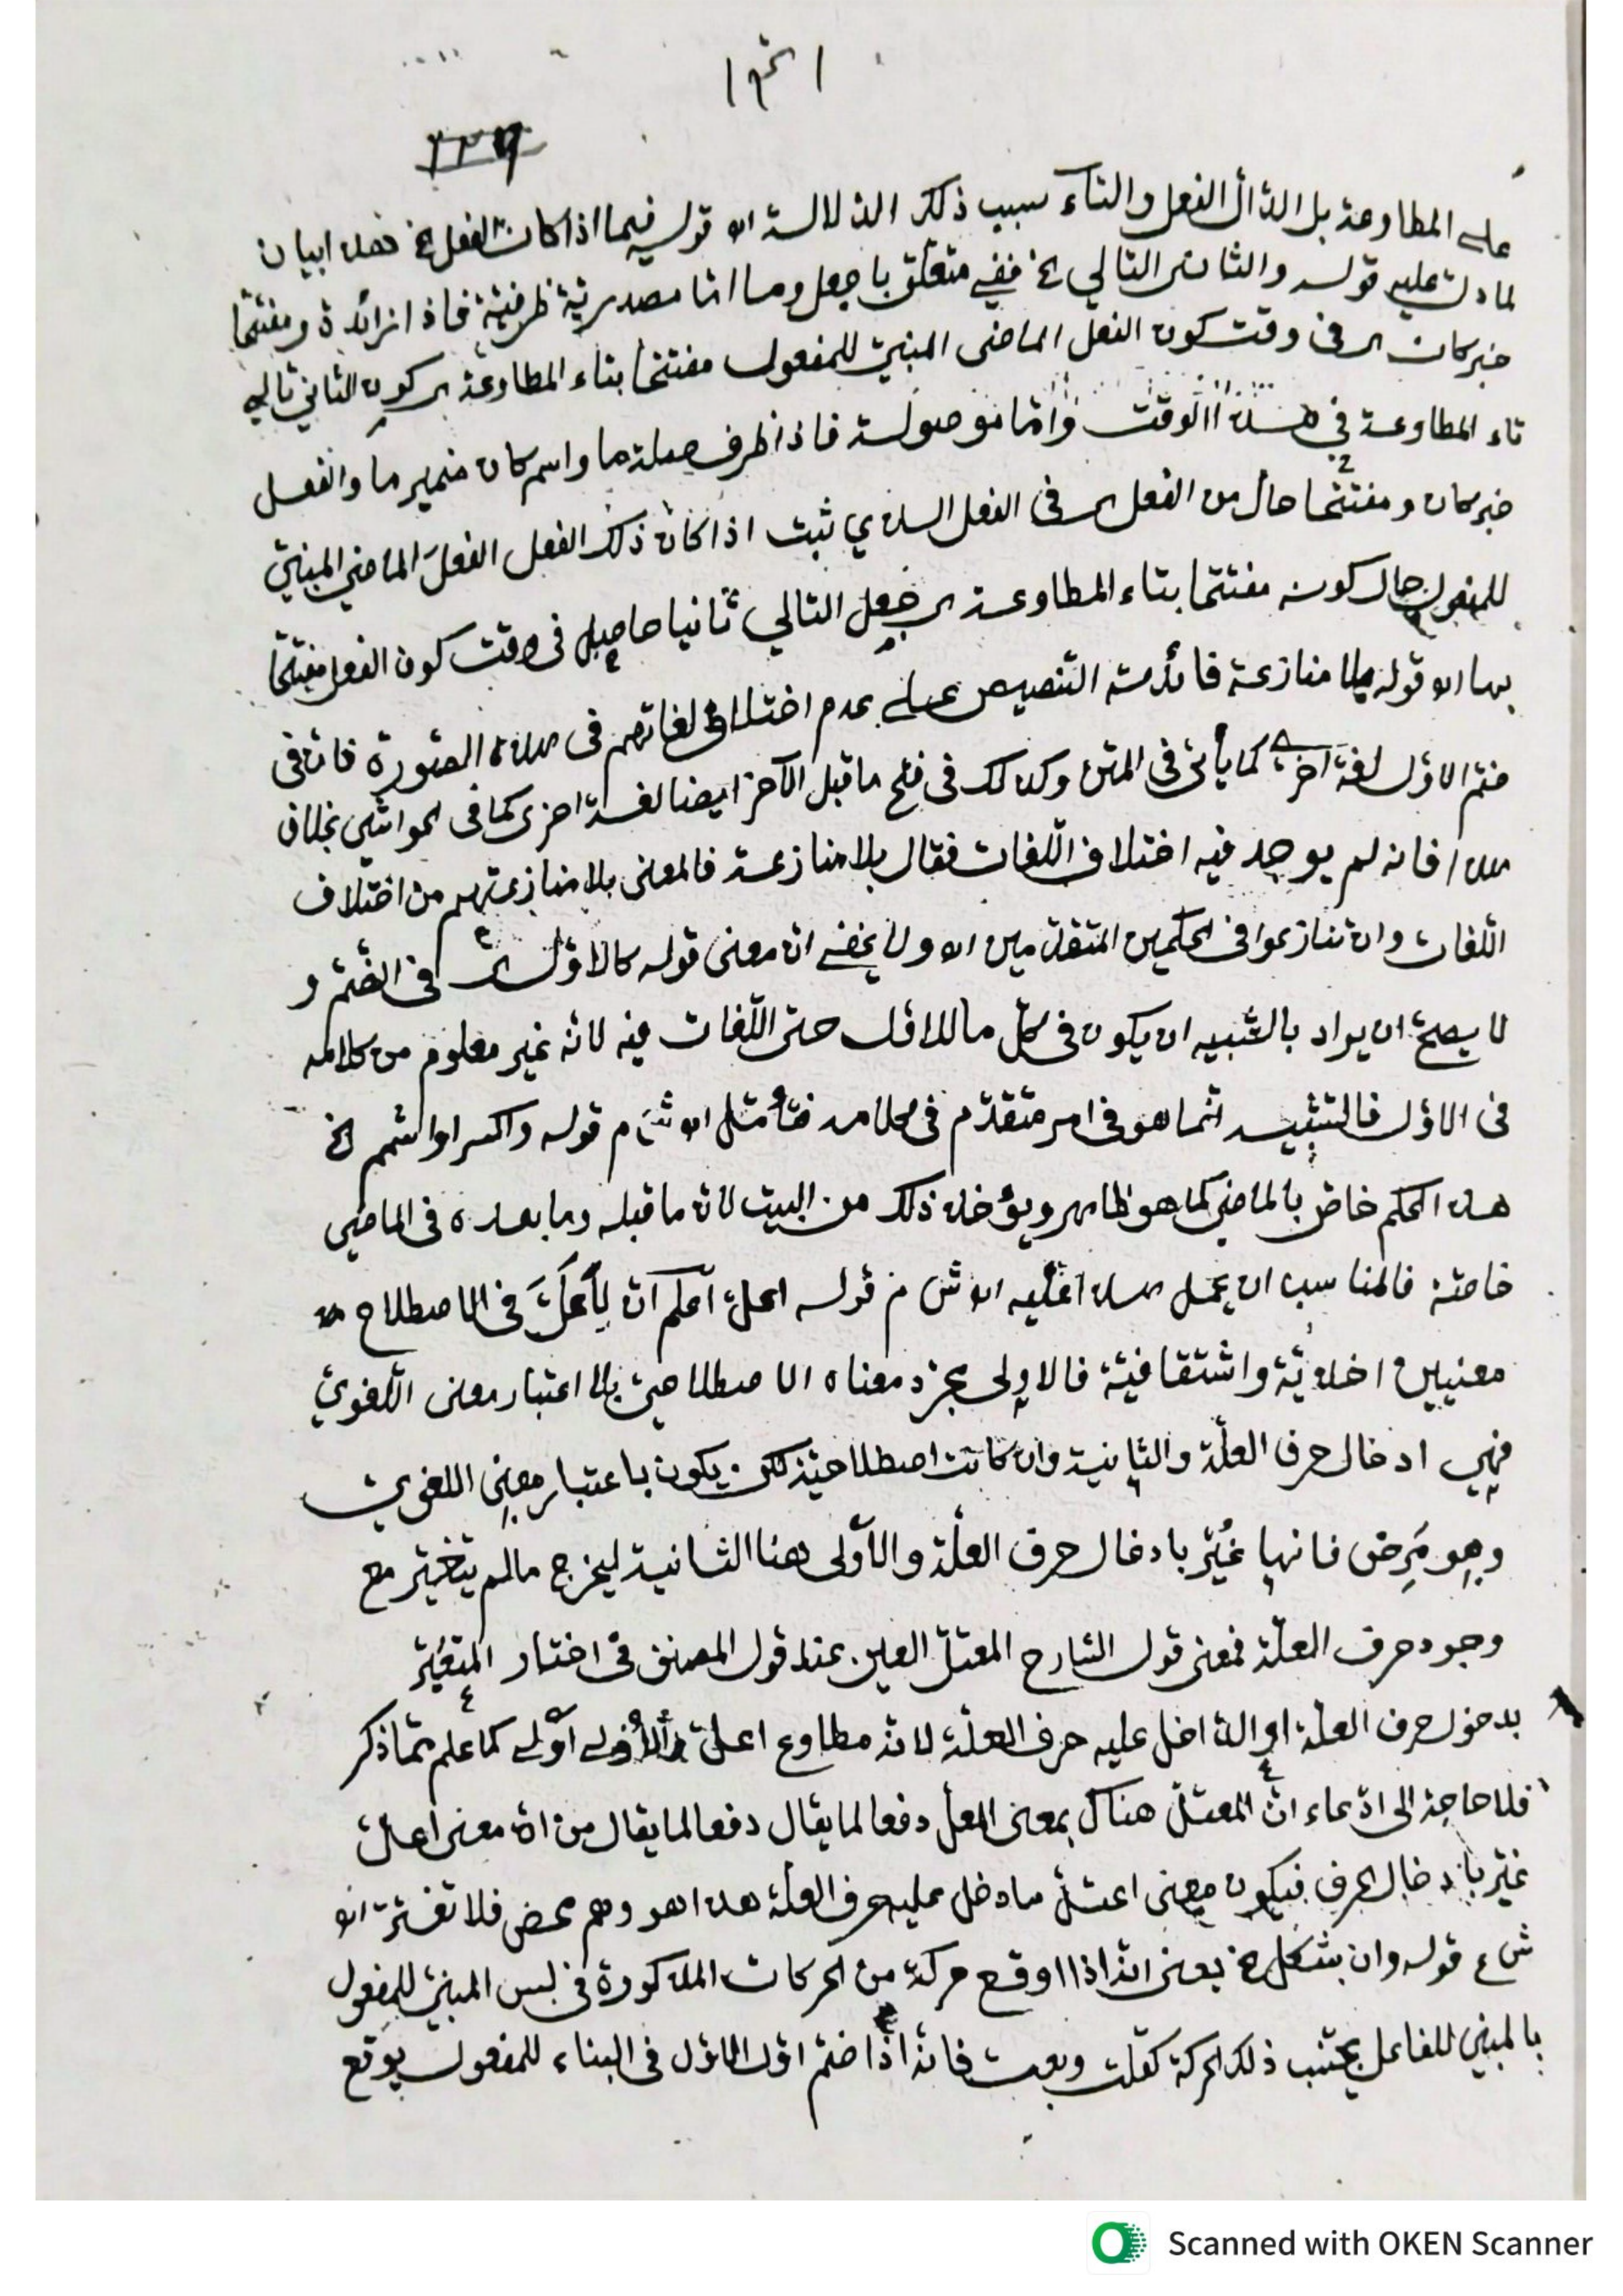 على المطاوعة بل الدال الفعل والتآء سبب ذلك الدلالة اه قوله فيما اذا كان الفعل الخ هذا بيان
لما دلت عليه قوله والثان التالي الخ ففي متعلق باجعل وما اما مصدرية ظرفية فاذا زائدة ومفتتحا
خبر كان اى فى وقت كون الفعل الماضى المبنيّ للمفعول مفتتحا بتاء المطاوعة اى كون الثاني تالي
تاء المطاوعة في هذا الوقت وامّا موصولة فاذا ظرف صلة ما واسم كان ضمير ما والفعل
خبر كان ومفتتحا حال من الفعل اى فى الفعل الذي ثبت اذا كان ذلك الفعل الفعلَ الماضي المبنيّ
للمفعول حال كونه مفتتحا بتاء المطاوعة اى جعل التالي ثانيا حاصل فى وقت كون الفعل مفتتحا
بها اه قوله بلا منازعة فائدته التنصيص على عدم اختلاف لغاتهم فى هذه الصّورة فان فى
ضم الاوّل لغة اخرى كما يأتى فى المتن وكذلك فى فتح ما قبل الآخر ايضا لغة اخرى كما فى الحواشي بخلاف
هذا فانه لم يوجد فيه اختلاف اللّغات فقال بلا منازعة فالمعنى بلا منازعتهم من اختلاف
اللّغات وان تنازعوا فى الحكمين المتقدّمين اه ولا يخفى ان معنى قوله كالاوّل اى فى الضّم و
لا يصحّ ان يراد بالتّشبيه ان يكون فى كلّ ما للاوّل حتى اللّغات فيه لانّه غير معلوم من كلامه
فى الاوّل فالتشبيه انّما هو فى امر متقدّم فى كلامه فتأمّل اه ش م قوله واكسر او اشمم الخ
هذا الحكم خاصّ بالماضي كما هو ظاهر ويؤخذ ذلك من البيت لان ما قبله وما بعده فى الماضي
خاصّة فالمناسب ان يحمل هذا عليه اه ش م قوله اعلّ اعلم انّ لِأعَلَّ فى الاصطلاح
معنيين اخذيّة واشتقاقيّة فالاولى مجرّد معناه الاصطلاحيّ بلا اعتبار معنى اللّغويّ
فهي ادخال حرف العلّة والثانية وان كانت اصطلاحيّة لكن يكون باعتبار معنى اللغوي
وهو مَرِض فانها غُيّر بادخال حرف العلّة والاَولى هنا الثانية ليخرج مالم يتغيّر مع
وجود حرف العلّة فمعنى قول الشارح المعتلّ العين عند قول المصنف فى اختار المتغيّر
بدخول حرف العلّة او الداخل عليه حرف العلّة لانّه مطاوع اعلّ والاُولى اَولى كما علم ممّا ذكر
فلا حاجة الى ادّعاء انّ المعتلّ هناك بمعنى المعلّ دفعا لما يقال دفعا لما يقال من ان معنى اعلّ
غيّر بادخال الحرف فيكون معنى اعتلّ ما دخل عليه حرف العلّة هذا هو وهم محض فلا تغترّ اه
ش ع قوله وان بشكل الخ يعنى انّه اذا اوقع حركة من الحركات المذكورة فى لبس المبنيّ للمفعول
بالمبني للفاعل يجتنب ذلك الحركة كقلت وبعت فانّه اذا ضم اوّل الاوّل فى البناء للمفعول يوقع
Scanned with OKEN Scanner